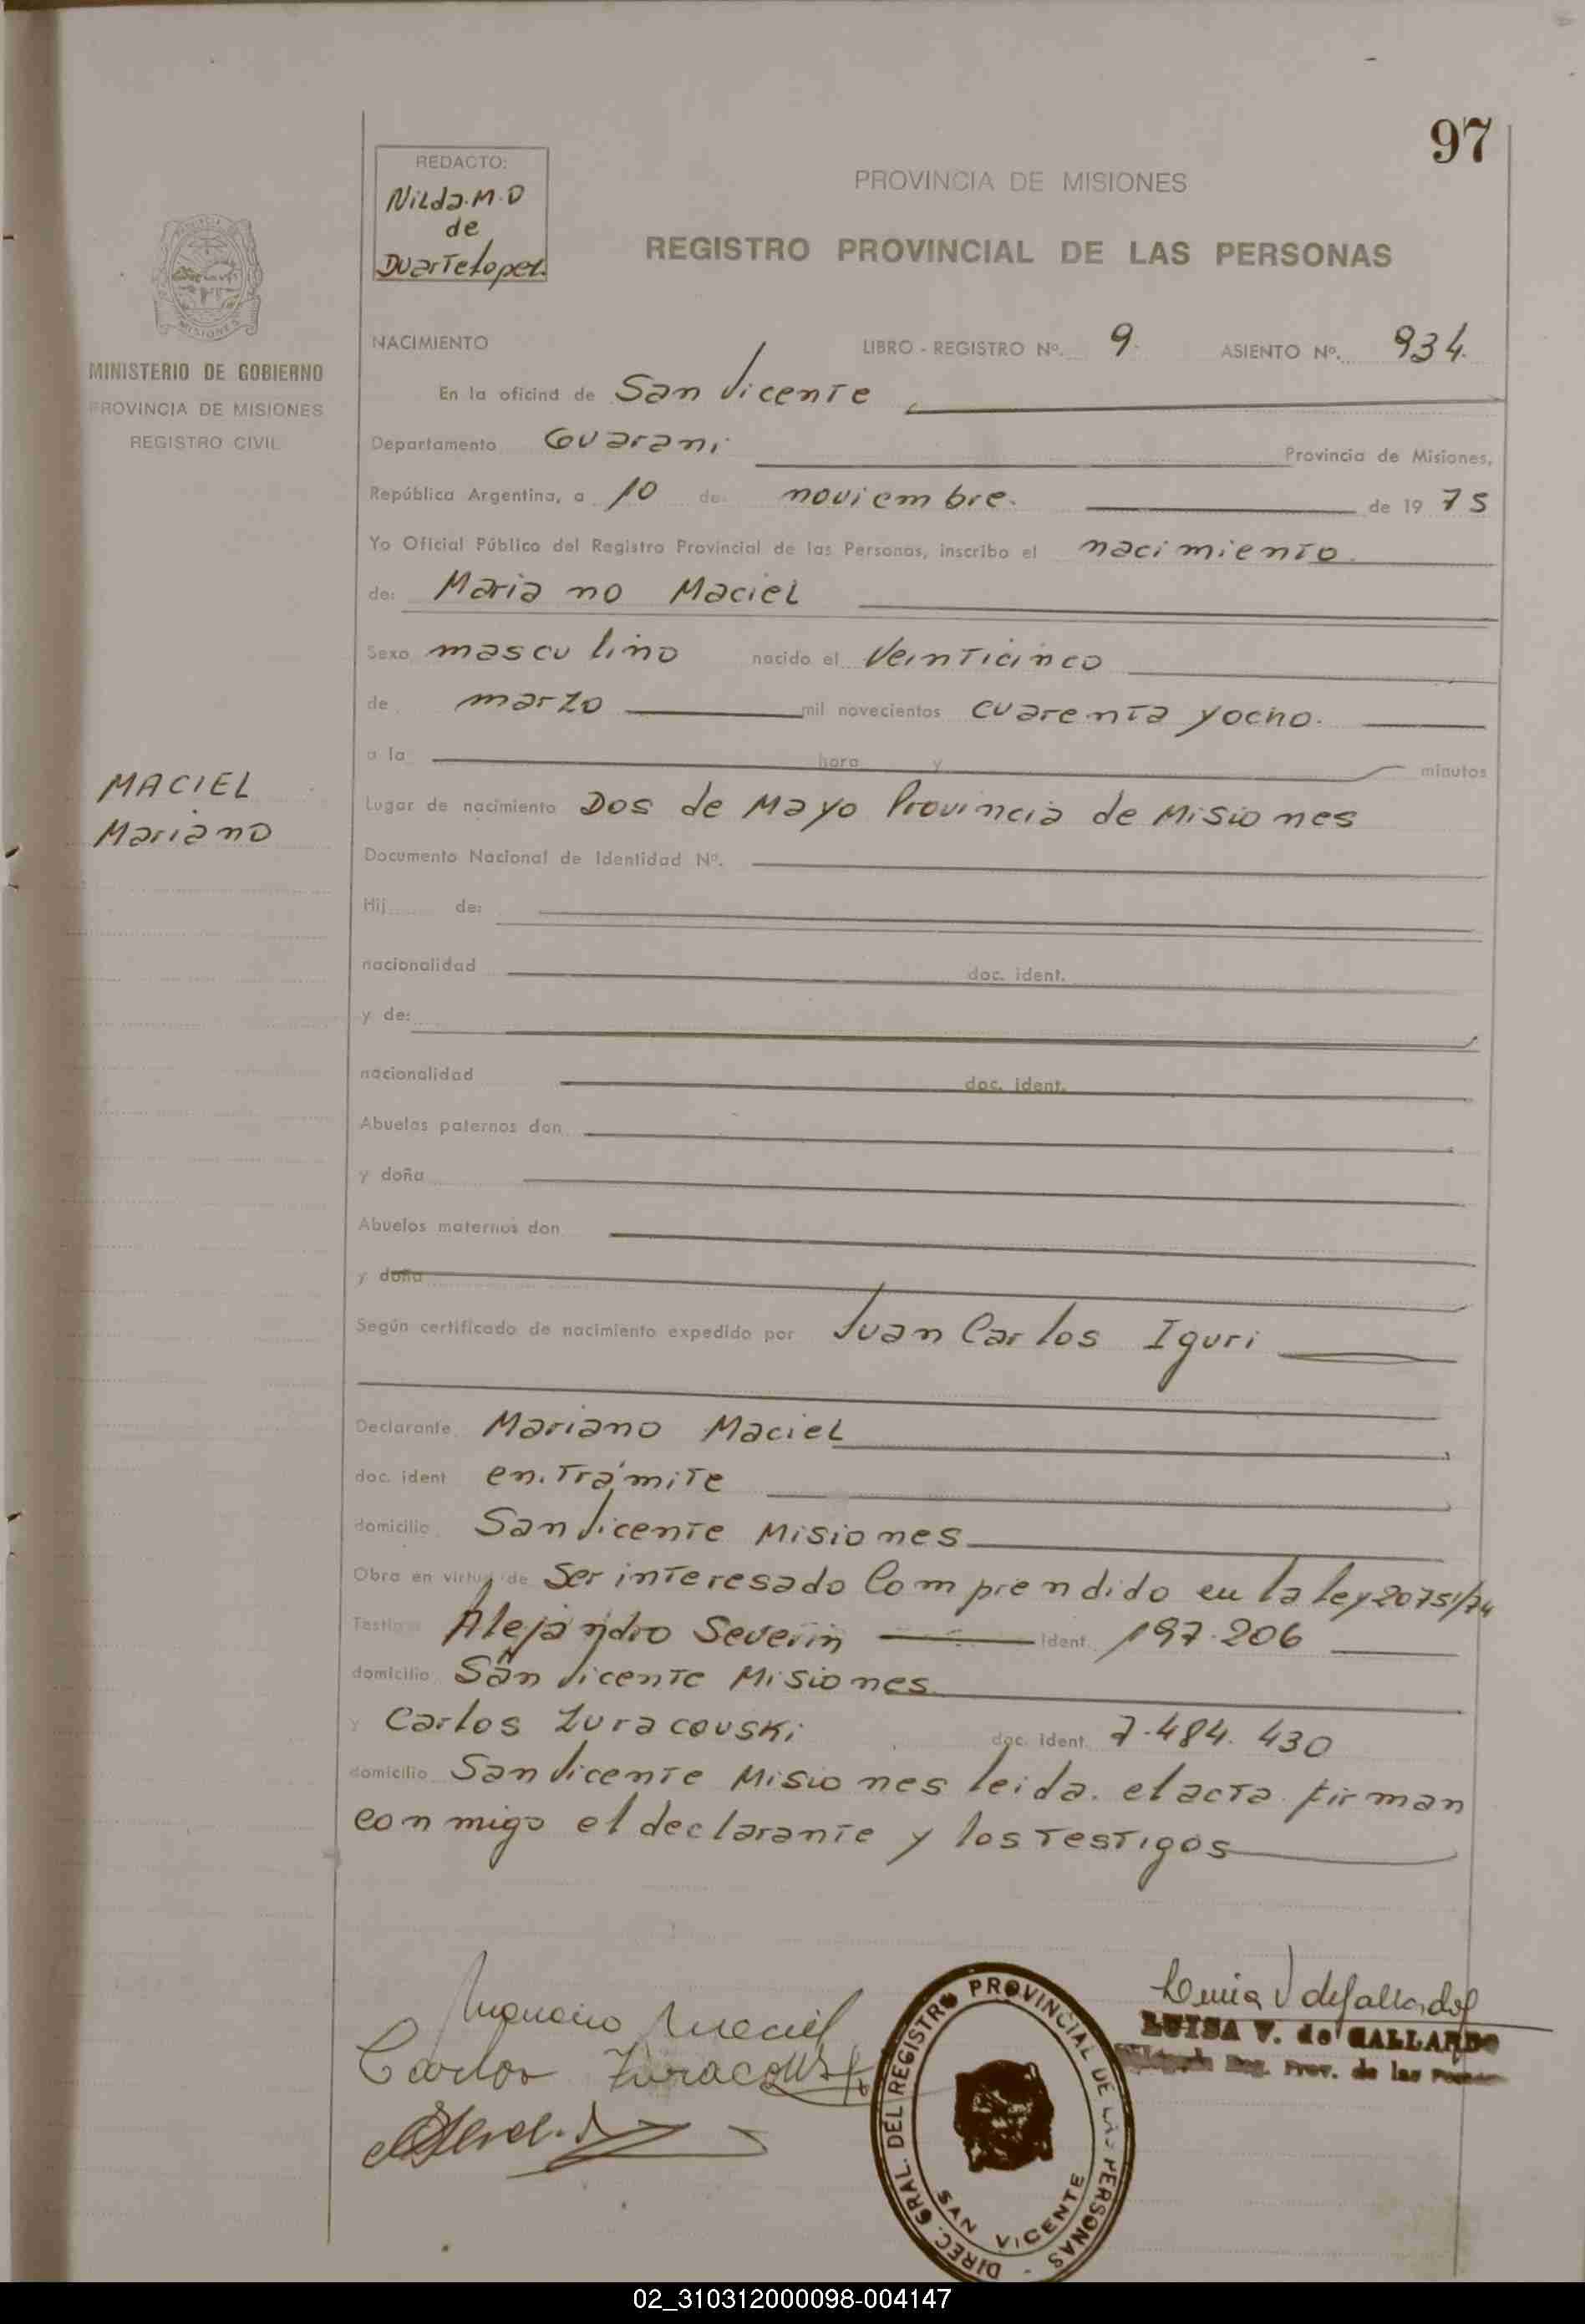 97
REDACTO:
Nilda.M.D
de
Duarte Lopez.
PROVINCIA DE MISIONES
REGISTRO PROVINCIAL DE LAS PERSONAS
MISIONES
MINISTERIO DE GOBIERNO
PROVINCIA DE MISIONES
REGISTRO CIVIL
NACIMIENTO LIBRO - REGISTRO Nº. 9. ASIENTO Nº. 934.
En la oficina de San Vicente
Departamento Guarani Provincia de Misiones,
República Argentina, a 10 de noviembre. de 19 75
Yo Oficial Público del Registro Provincial de las Personas, inscribo el nacimiento.
de: Mariano Maciel
Sexo masculino nacido el Veinticinco
de marzo mil novecientos cuarenta y ocho.
a la hora y minutos
MACIEL
Mariano
Lugar de nacimiento Dos de Mayo Provincia de Misiones
Documento Nacional de Identidad Nº.
Hij de:
nacionalidad doc. ident.
y de:
nacionalidad doc. ident.
Abuelos paternos don
y doña
Abuelos maternos don
y doña
Según certificado de nacimiento expedido por Juan Carlos Iguri
Declarante Mariano Maciel
doc. ident en. Trámite
domicilio San Vicente Misiones
Obra en virtud de Ser interesado Comprendido en la ley 20751/74
Testigo Alejandro Severin ident. 197.206
domicilio San Vicente Misiones
y Carlos Zuracouski doc. ident. 7.484.430
domicilio San Vicente Misiones leida. el acta firman
conmigo el declarante y los testigos
Mariano Maciel
Carlos Zuracouski
DIREC. GRAL. DEL REGISTRO PROVINCIAL DE LAS PERSONAS -
SAN VICENTE
Luisa V de Gallardo
LUISA V. de GALLARDO
Reg. Prov. de las
02_310312000098-004147